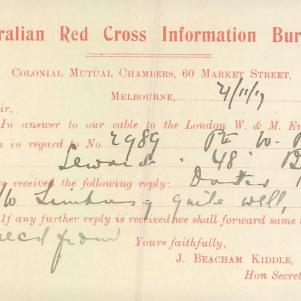 ralian Red Cross Information Bur
COLONIAL MUTUAL CHAMBERS, 60 MARKET STREET,
MELBOURNE, 4/11/19
ir,
In answer to our cable to the London W. & M. En
in regard No. 2989 Pte W. P
48
received the following reply:
quite well,
If any further reply is received we shall forward same
from
Yours faithfully,
J. BEACHAM KIDDLE,
Hon Secret